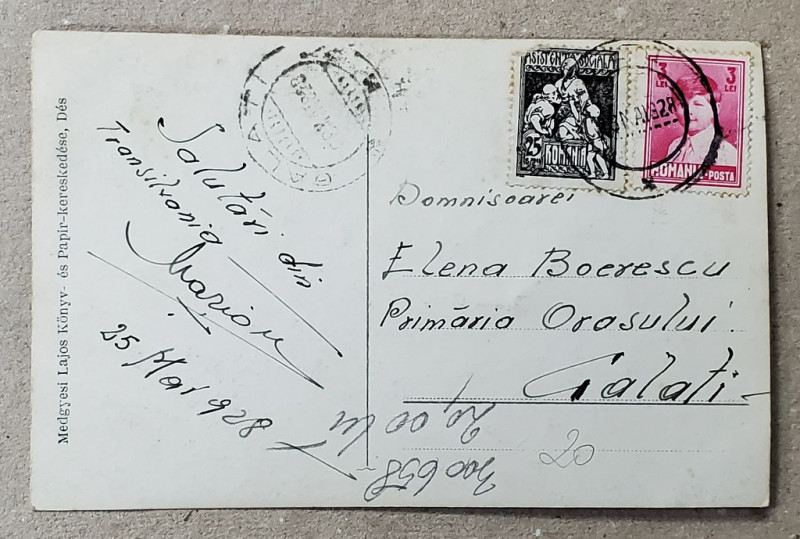 Medgyesi Lajos Könyv- és Papir-kereskedése, Dés
Salutări din
Transilvania
Marion
25 Mai 928
GALATI
ASISTENTA SOCIALA
25
ROMANIA
3 LEI
3 LEI
ROMANIA-POSTA
MAI 928
Domnisoarei
Elena Boerescu
Primăria Orasului
Galati
20,00 lei
300658
20